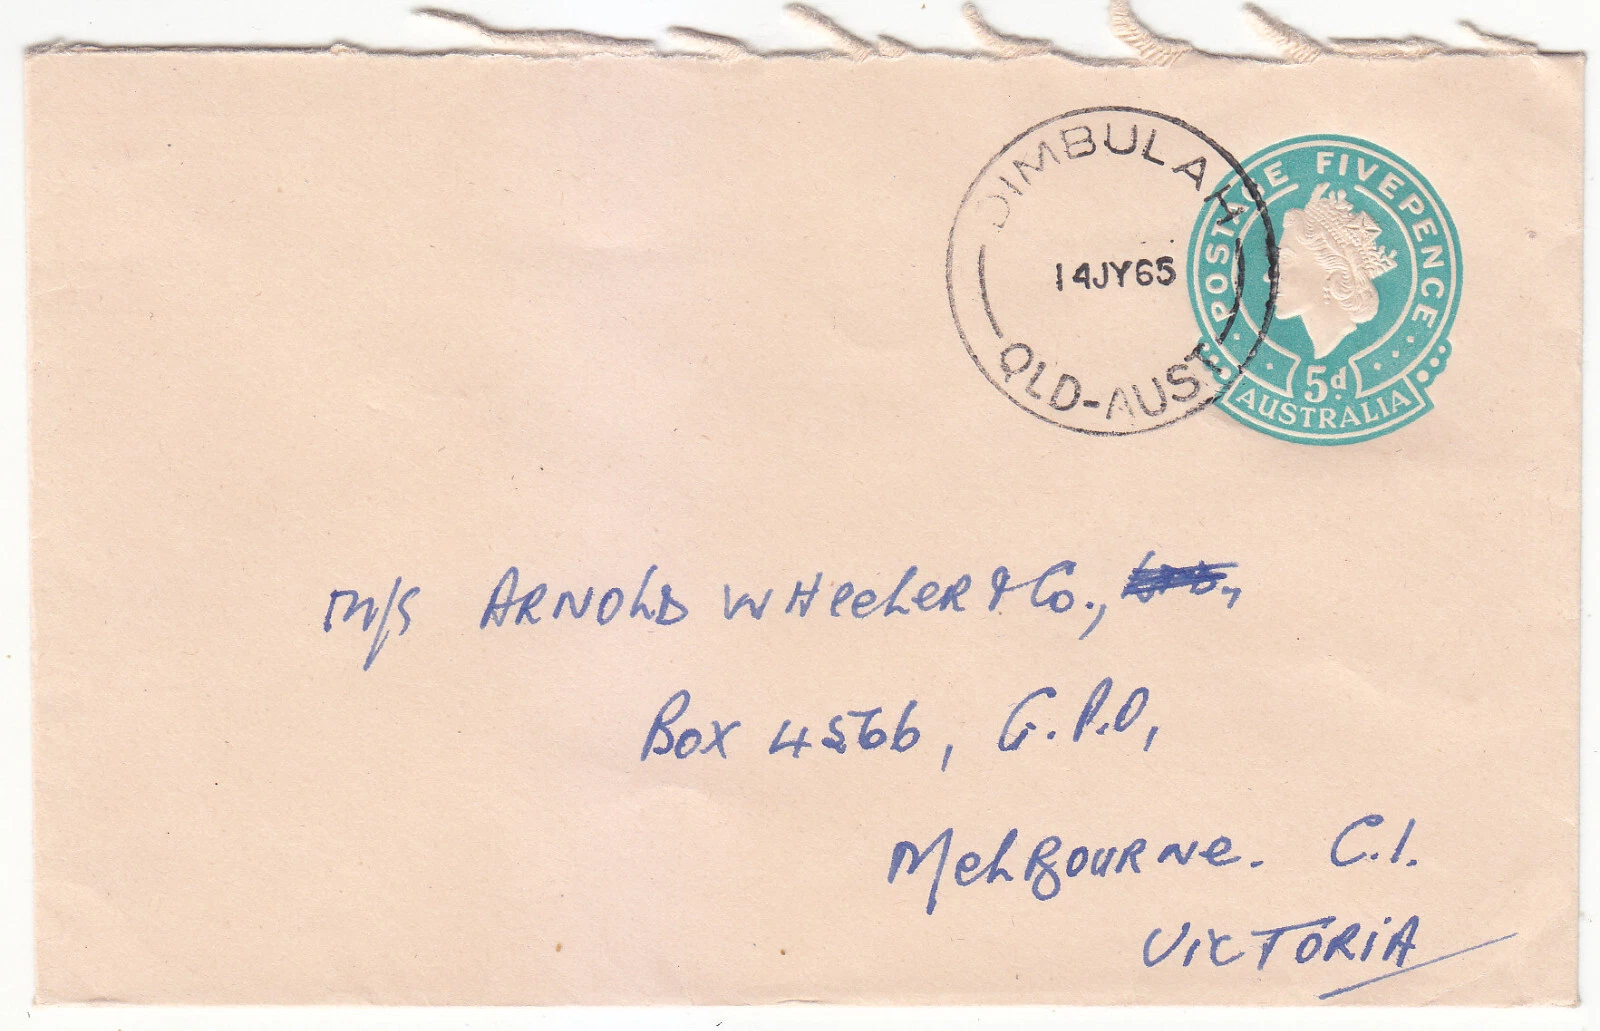 DIMBULAH
14JY65
QLD-AUST
POSTAGE FIVEPENCE
5d.
AUSTRALIA
M/S ARNOLD WHEELER & Co.,
Box 4566, G.P.O,
MELBOURNE. C.1.
VICTORIA